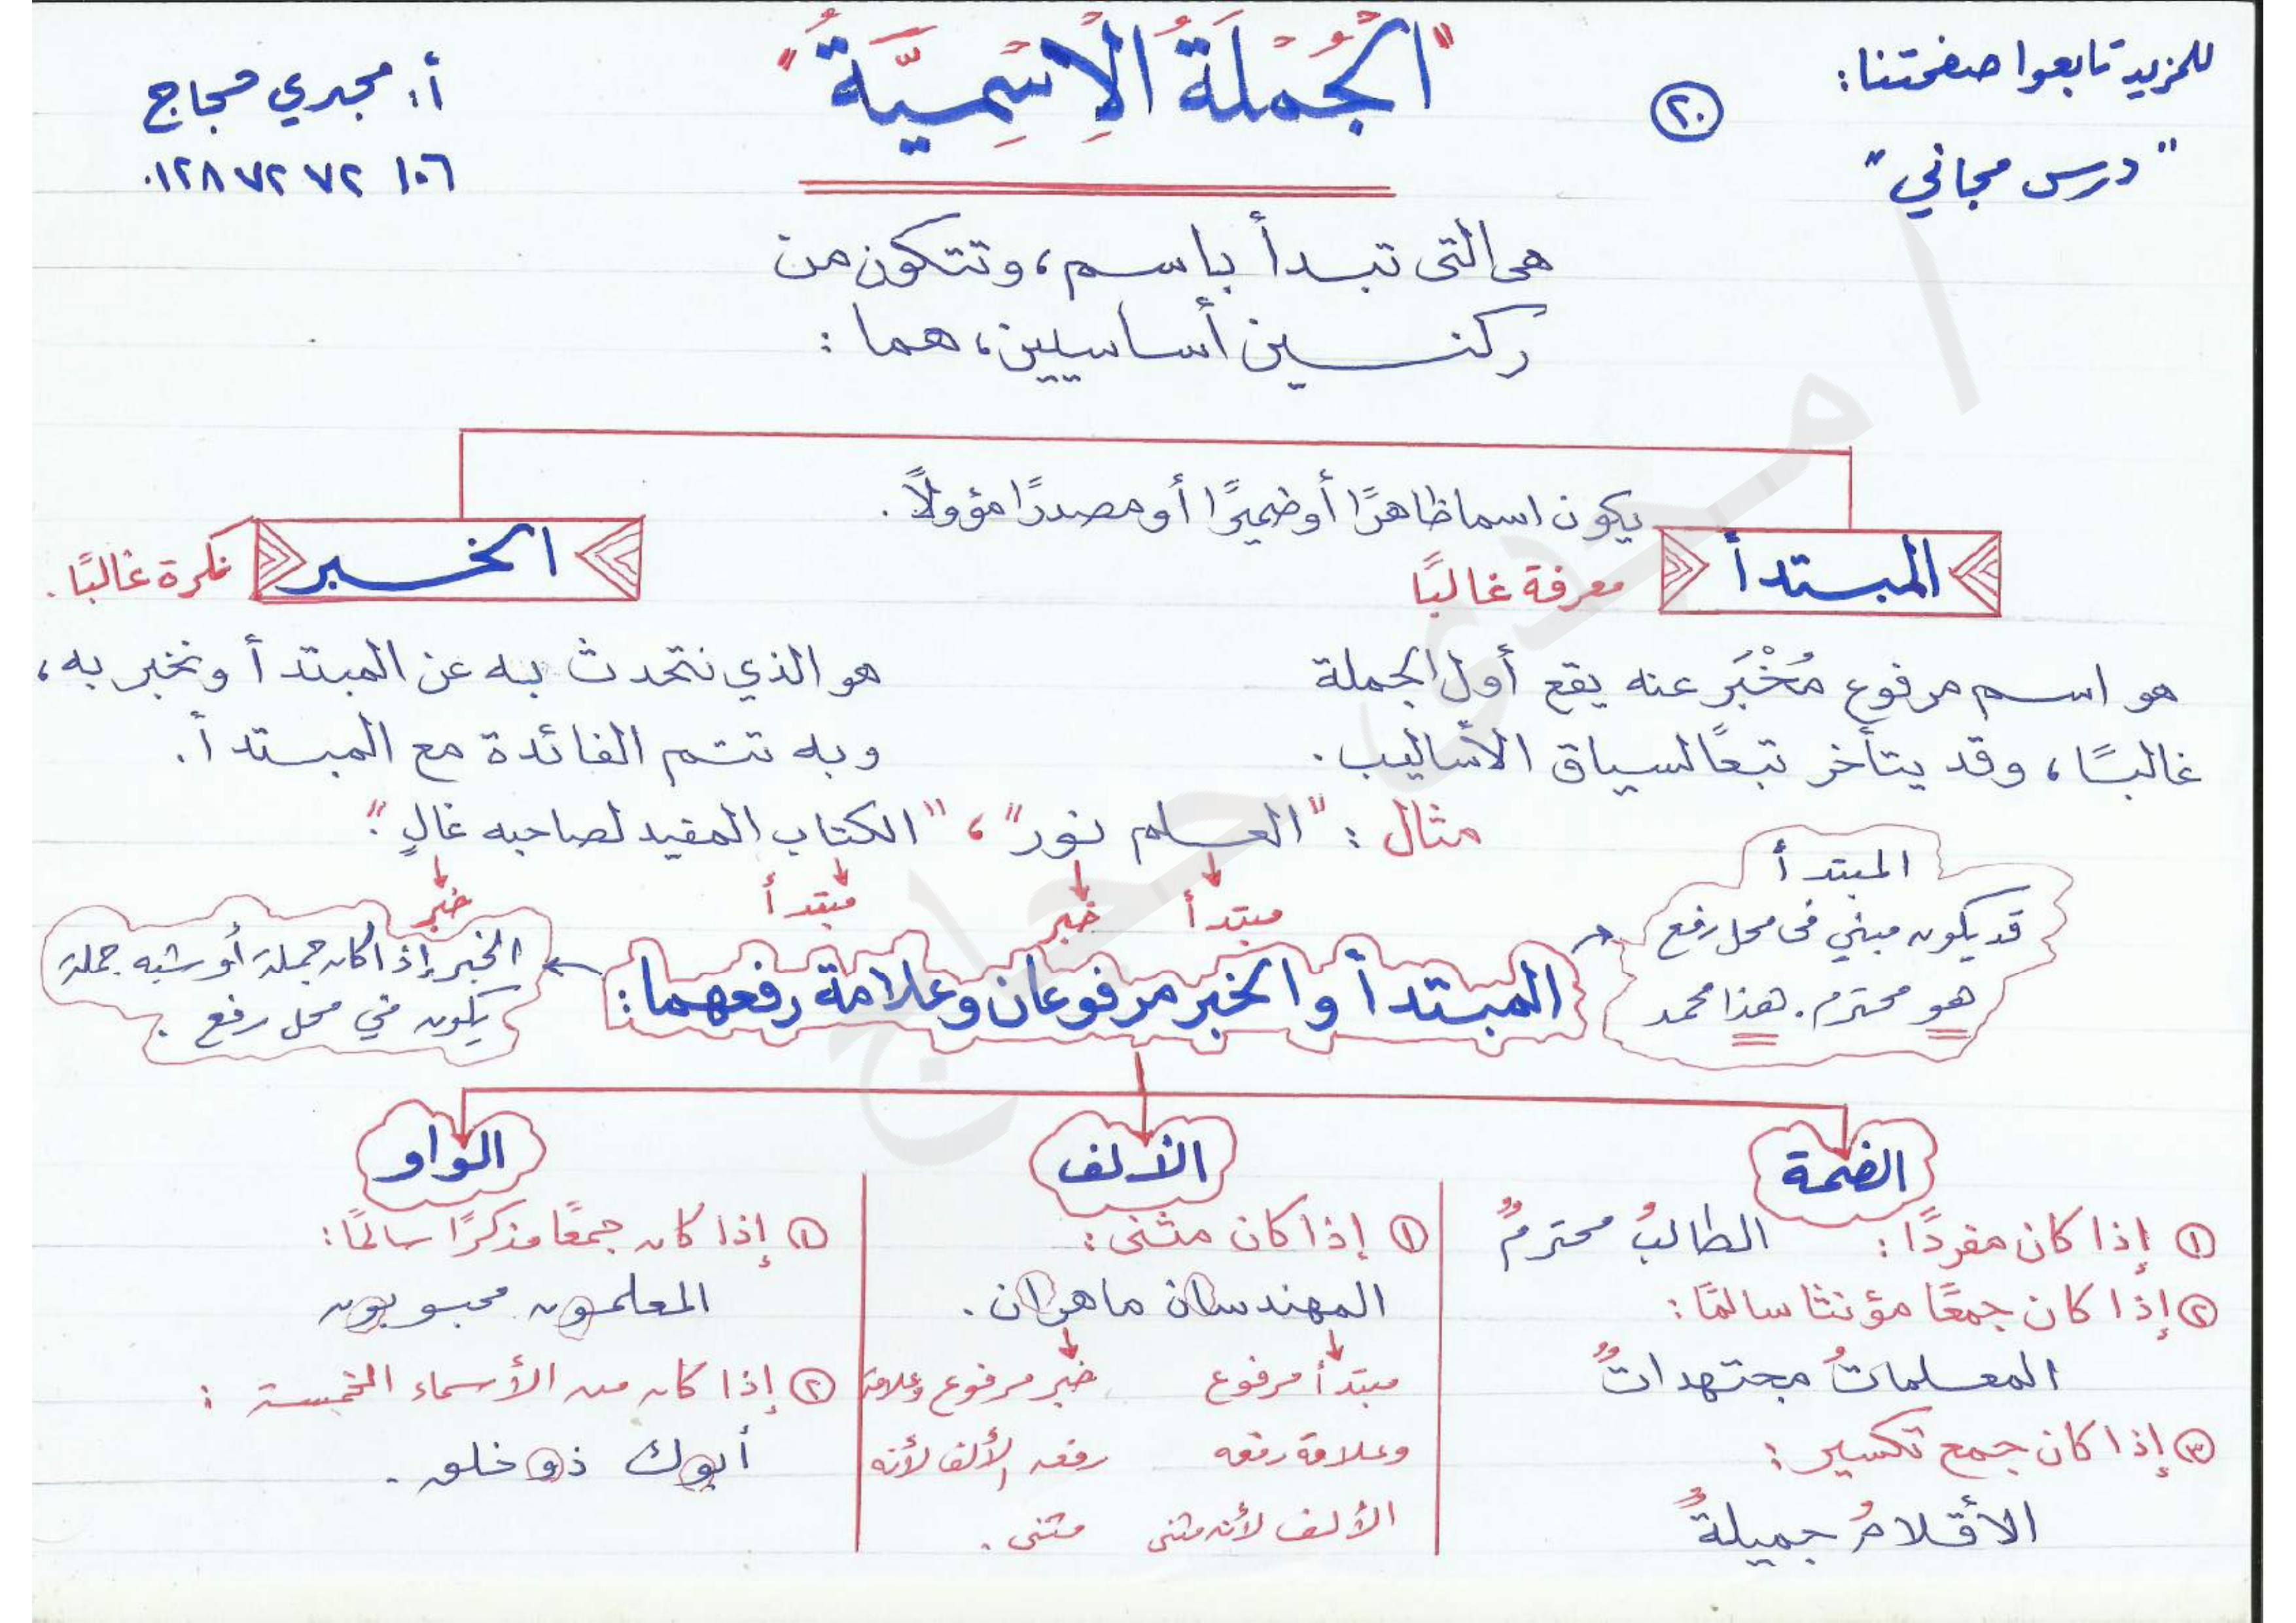 للمزيد تابعوا صفحتنا:
"درس مجاني"
٢٠
"الجُمْلَةُ الِاسْمِيَّةُ"
أ. مجدي حجاج
٠١٢٨٧٢٧٢١٠٦
هى التى تبدأ باسم، وتتكون من
ركنين أساسيين، هما:
يكون اسما ظاهرًا أو ضميرًا أو مصدرًا مؤولًا.
المبتدأ
معرفة غالبًا
هو اسم مرفوع مُخْبَر عنه يقع أول الجملة
غالبًا، وقد يتأخر تبعًا لسياق الأساليب.
الخبر
نكرة غالبًا.
هو الذي نتحدث به عن المبتدأ ونخبر به،
وبه تتم الفائدة مع المبتدأ.
مثال: "العلم نور"، "الكتاب المفيد لصاحبه غالٍ".
مبتدأ خبر مبتدأ خبر
المبتدأ
قد يكون مبني فى محل رفع
هو محترم. هذا محمد
المبتدأ والخبر مرفوعان وعلامة رفعهما:
الخبر إذا كان جملة أو شبه جملة
يكون في محل رفع.
الضمة
١ إذا كان مفردًا: الطالبُ محترمٌ
٢ إذا كان جمعًا مؤنثا سالمًا:
المعلماتُ مجتهداتٌ
٣ إذا كان جمع تكسير:
الأقلامُ جميلةٌ
الألف
١ إذا كان مثنى:
المهندسان ماهران.
مبتدأ مرفوع
وعلامة رفعه
الألف لأنه مثنى
خبر مرفوع وعلامة
رفعه الألف لأنه
مثنى.
الواو
١ إذا كان جمعًا مذكرًا سالمًا:
المعلمون محبوبون
٢ إذا كان من الأسماء الخمسة:
أبوك ذو خلق.
أ/ مجدى حجاج